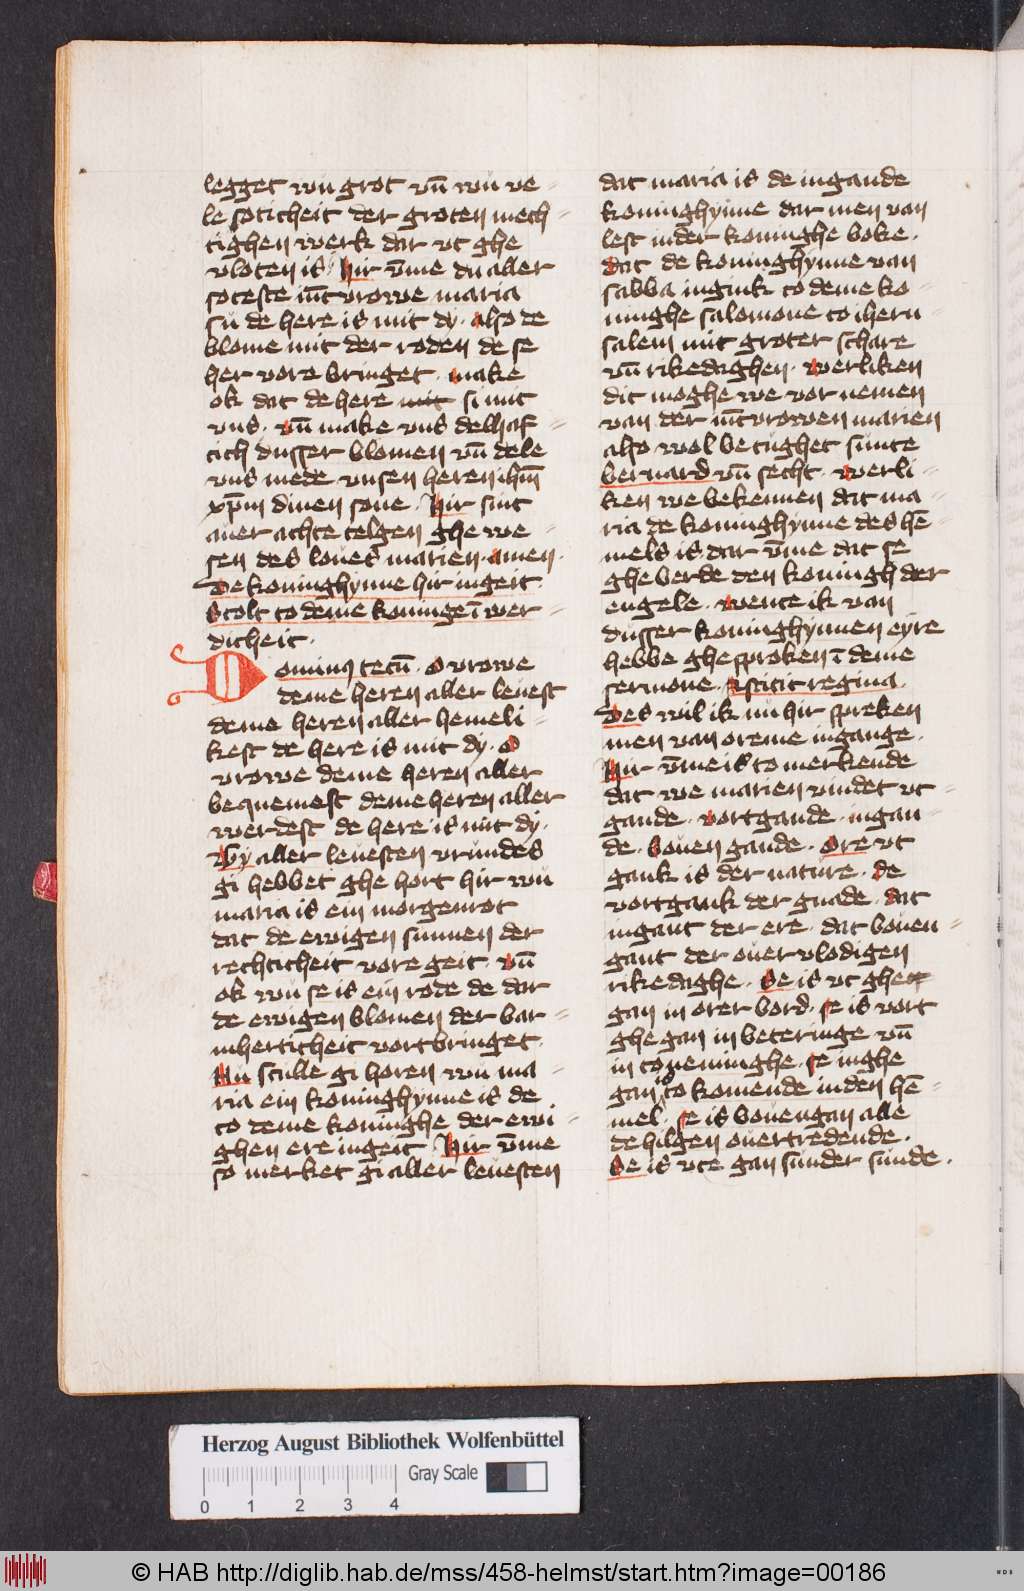 legget wu grot vn̄ wu ve=
le soticheit der groten mech=
tighen werk dar vt ghe
vloten is. Hir v̄me du aller
soteste iūcvrowe maria
su de here is mit dy. also de
blome mit der roden de se
her vore bringet. make
ok dat de here mit si mit
vns. vn̄ make vns delhaf=
tich dusser blomen vn̄ dele
vns mede vnsen heren ihm̄
xp̄m dinen sone. Hir sint
auer achte telgen ghe we=
sen des loues marien. amen.
De koninghynne hir ingeit.
Stolt to deme koninge ī wer=
dicheit.
Dominꝰ tecū. O vrowe
deme heren aller leuest
deme heren aller hemeli=
kest de here is mit dy. O
vrowe deme heren aller
bequemest deme heren aller
werdest de here is mit dy.
Wy aller leuesten vrundes
gi hebbet ghe hort hir wu
maria is ein morgenrot
dat de ewigen sunnen der
rechticheit vore geit. vn̄
ok wu se is ein rode de dar
de ewigen blomen der bar=
mherticheit vortbringet.
Nu sculle gi horen wu ma=
ria ein koninghynne is de
to deme koninghe der ewi=
ghen ere ingeit. Hir v̄me
so merket gi aller leuesten
dat maria is de ingande
koninghynne dar men van
lest in der koninghe boke.
dat de koninghynne van
sabba ingink to deme ko=
ninghe salomone to iheru=
salem mit groter schare
vn̄ rikedaghen. werliken
dit moghe we vor nemen
van der iūcvrowen marien
also wol betughet sunte
bernard vn̄ secht. werli=
ken we bekennen dat ma=
ria de koninghynne des hē=
mels is. dar v̄me dat se
ghe berde den koningh der
engele. wente ik van
dusser koninghynnen eyre
hebbe ghe sproken ī deme
sermone. Astitit regina.
Des wil ik nu hir spreken
men van oreme ingange.
Hir v̄me is to merkende
dat we marien vindet vt=
gande. vortgande. ingan=
de. bouen gande. Ore vt
gank is der nature. de
vortgank der gnade. dat
ingant der ere. dat bouen=
gant der ouer vlodigen
rikedaghe. Se is vt ghe
gan in orer bord. se is vort
ghe gan in beteringe vn̄
in toneminghe. se inghe
gan is to komende in den hē=
mel. se is bouengan alle
de hilgen ouertredende.
Se is vte gan sunder sunde.
Herzog August Bibliothek Wolfenbüttel
Gray Scale
0 1 2 3 4
© HAB http://diglib.hab.de/mss/458-helmst/start.htm?image=00186